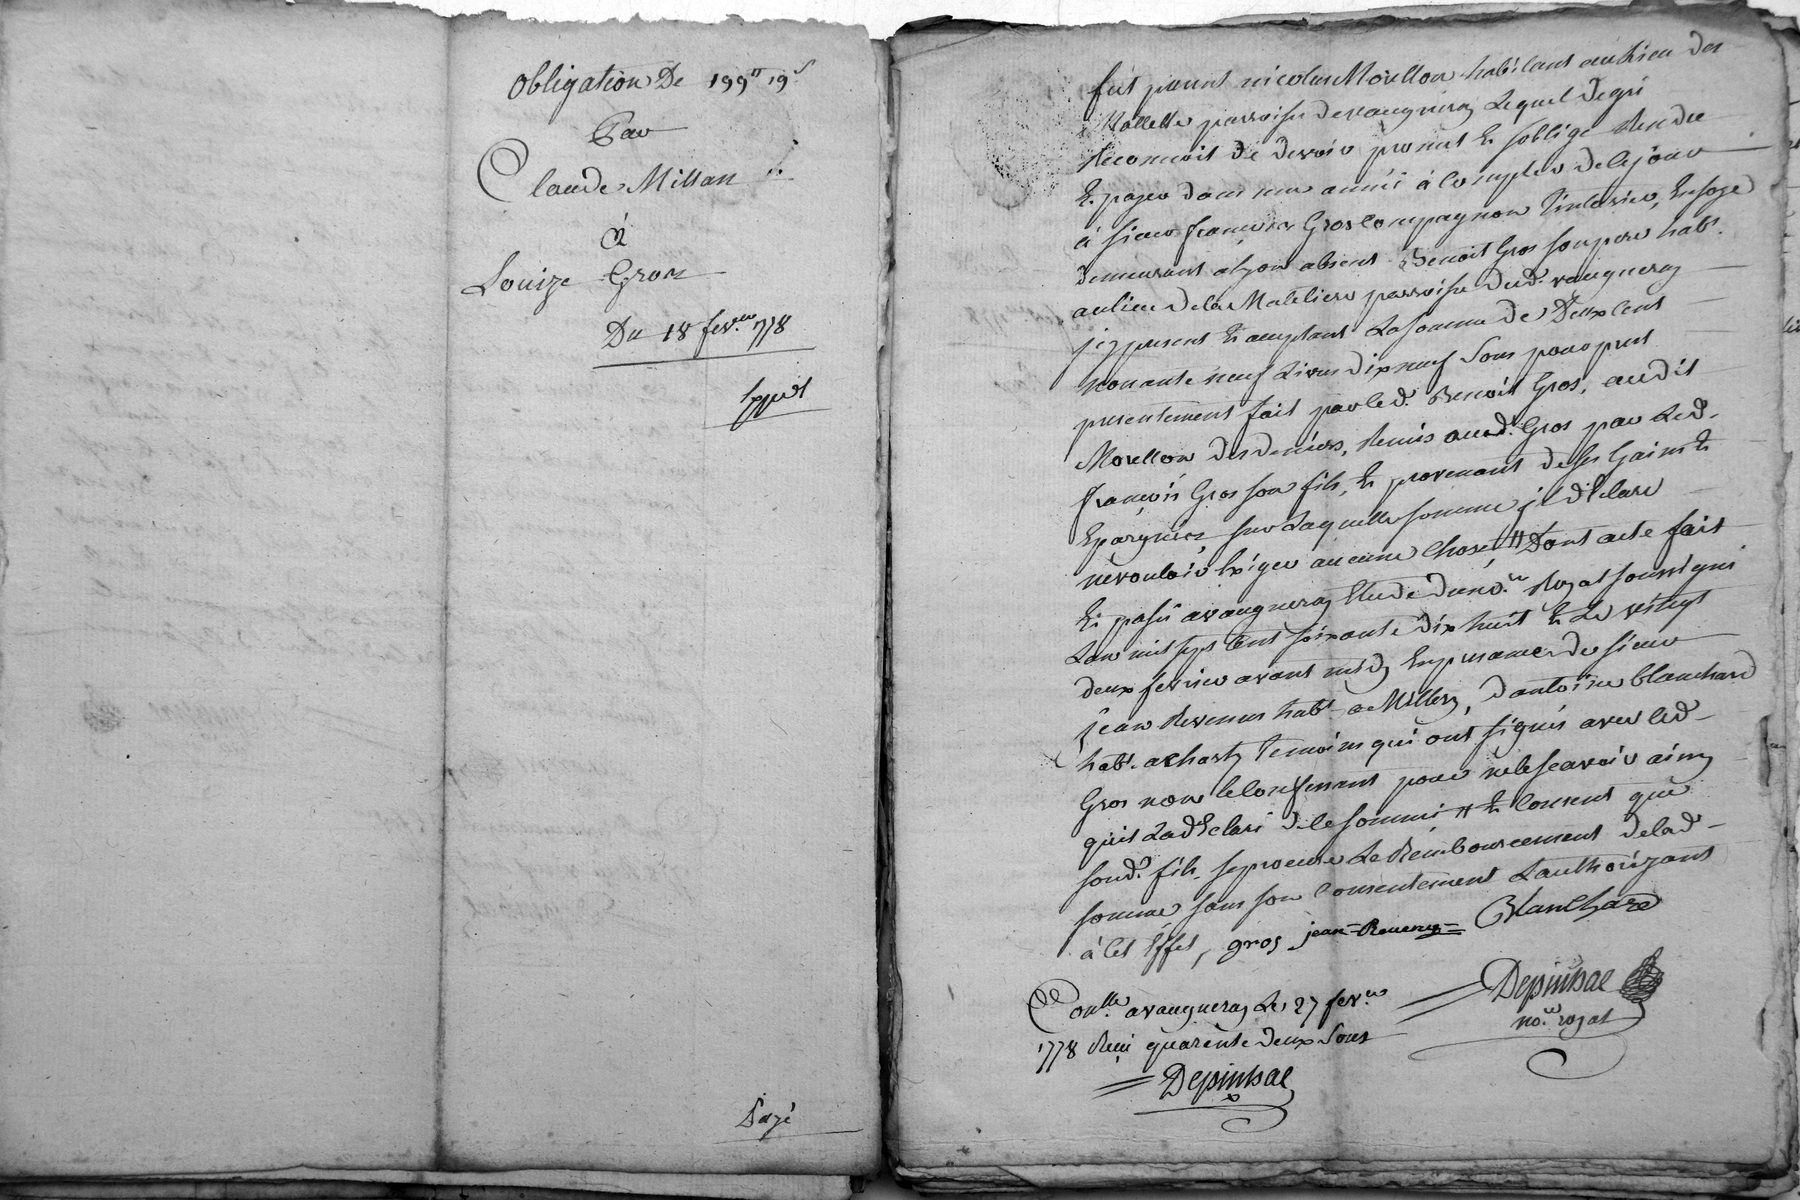 Obligation De 199ᵗᵗ 19ˢ
Par
Claude Millan
à
Louize Gros
Du 18 fev.ᵉʳ 1778
Expet
Payé
fut present nicolas Morellon habitant au lieu des
Mallette parroisse de vaugneray Lequel de gré
reconnoit de devoir promet et s'oblige rendre
Et payer dans une année à compter de ce jour
à sieur françois Gros Compagnon Tinturier, En soye
demeurant a lyon absent Benoit Gros son pere hab.ᵗ
au lieu de la Mateliere parroisse dud. vaugneray
icy present Et acceptant La somme de Deux Cent
nonante neuf Livres dix neuf sous pour pret
presentement fait par led. Benoit Gros, audit
Morellon des deniers, remis aud. Gros par Led.
françois Gros son fils, Et provenant de ses Gains Et
Epargnes sur Laquelle somme il déclare
ne vouloir Exiger aucune Chose // Dont acte fait
Et passé a vaugneray Etude du no.ʳᵉ Royal soussigné
L'an mil sept Cent soixante dix huit Et Le vingt
deux fevrier avant midy En presance de sieur
jean Revenus hab.ᵗ a Millery, d'antoine Blanchard
hab.ᵗ a Charly Temoins qui ont signés avec led.
Gros non le Confessant pour ne le sçavoir ainsy
qu'il La déclaré de ce sommé // Et Consent que
sond. fils se procure Le Remboursement de lad.
somme sans son Consentement L'authorizant
à Cet Effet, gros jean Revenus Blanchard
Depinhac
no.ʳᵉ royal
Con.ˡˡᵉ a vaugneray Le 27 fev.ᵉʳ
1778 Reçu quarente deux sous
Depinhac